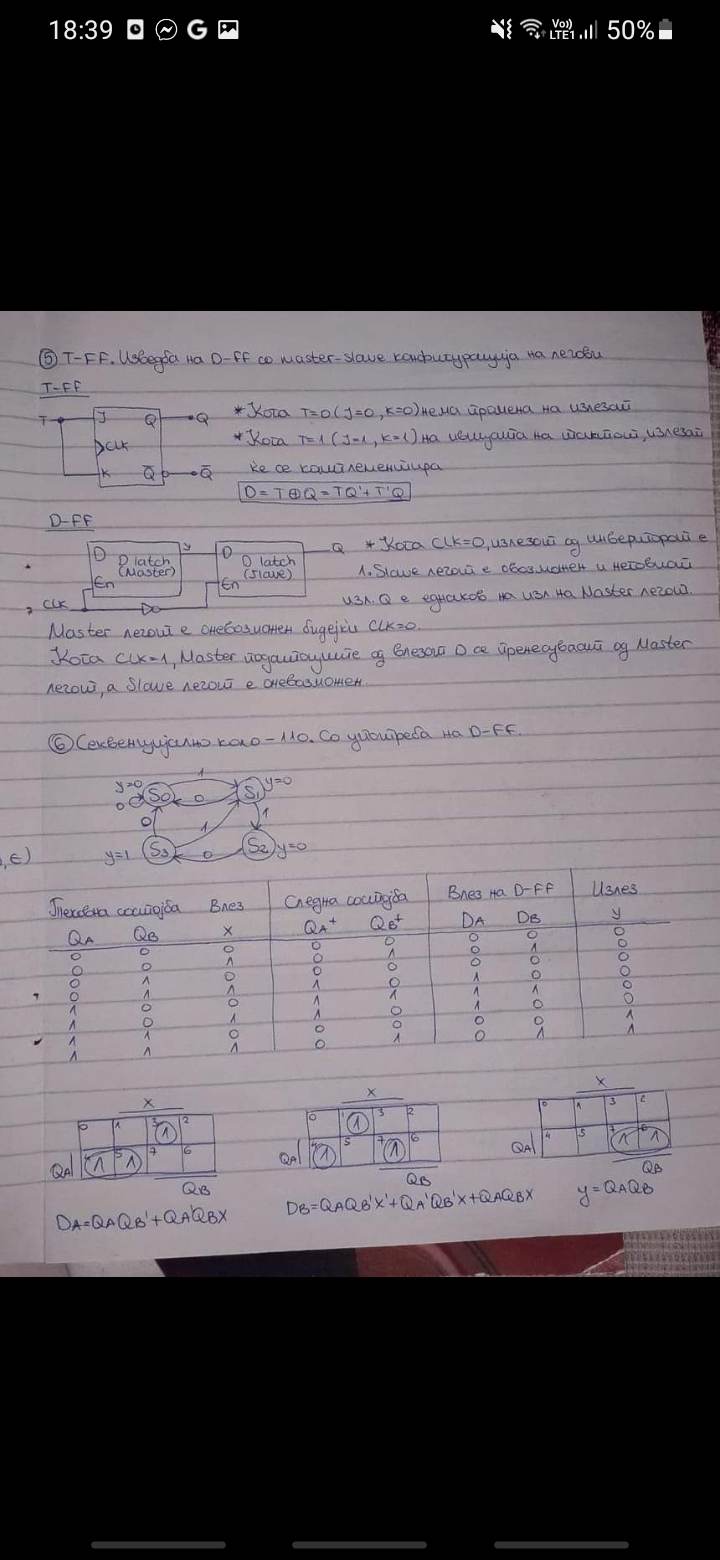 18:39 G Vo)) LTE1 50%
⑤ T-FF. Изведба на D-FF со master-slave конфигурација на легови
T-FF
T J Q Q
CLK
K Q̅ Q̅
* Кога T=0 (J=0, K=0) нема промена на излезот
* Кога T=1 (J=1, K=1) на ивицата на тактот, излезот
ќе се комплементира
D = T⊕Q = TQ' + T'Q
D-FF
D D latch (Master) En y D D latch (Slave) En Q
CLK
* Кога CLK=0, излезот од инверторот е
1. Slave легот е овозможен и неговиот
изл. Q е еднаков на изл. на Master легот.
Master легот е оневозможен бидејќи CLK=0.
Кога CLK=1, Master податоците од влезот D се пренесуваат од Master
легот, а Slave легот е оневозможен.
⑥ Секвенцијално коло - 110. Со употреба на D-FF.
y=0 S0 1 S1 y=0
0 0
0 1 1
,ε)
y=1 S3 0 S2 y=0
состојба Влез Следна состојба Влез на D-FF Излез
QA QB x QA+ QB+ DA DB y
0 0 0 0 0 0 0 0
0 0 1 0 1 0 1 0
0 1 0 0 0 0 0 0
0 1 1 1 0 1 0 0
1 0 0 1 1 1 1 0
1 0 1 1 0 1 0 0
1 1 0 0 0 0 0 1
1 1 1 0 1 0 1 1
x x x
0 1 3 1 2 0 1 1 3 2 0 1 3 2
QA 4 1 5 1 7 6 QA 4 1 5 7 1 6 QA 4 5 7 1 6 1
QB QB QB
DA = QAQB' + QA'QBX DB = QAQB'X' + QA'QB'X + QAQBX y = QAQB